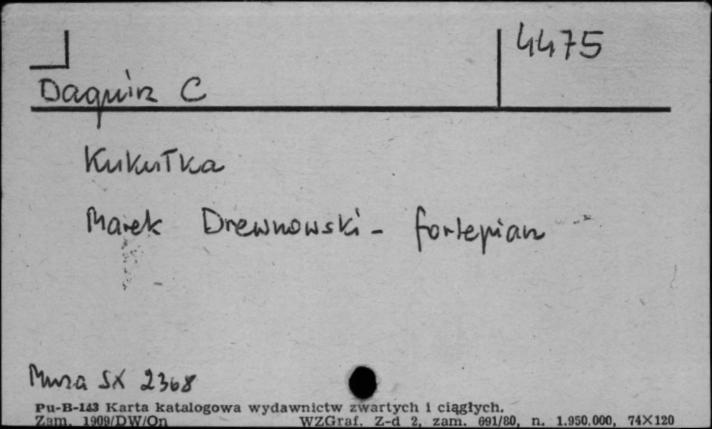 4475
Daquin C
Kukułka
Marek Drewnowski - fortepian
Muza SX 2368
Pu-B-143 Karta katalogowa wydawnictw zwartych i ciągłych.
Zam. 1909/DW/On WZGraf. Z-d 2, zam. 691/80, n. 1.950.000, 74X120